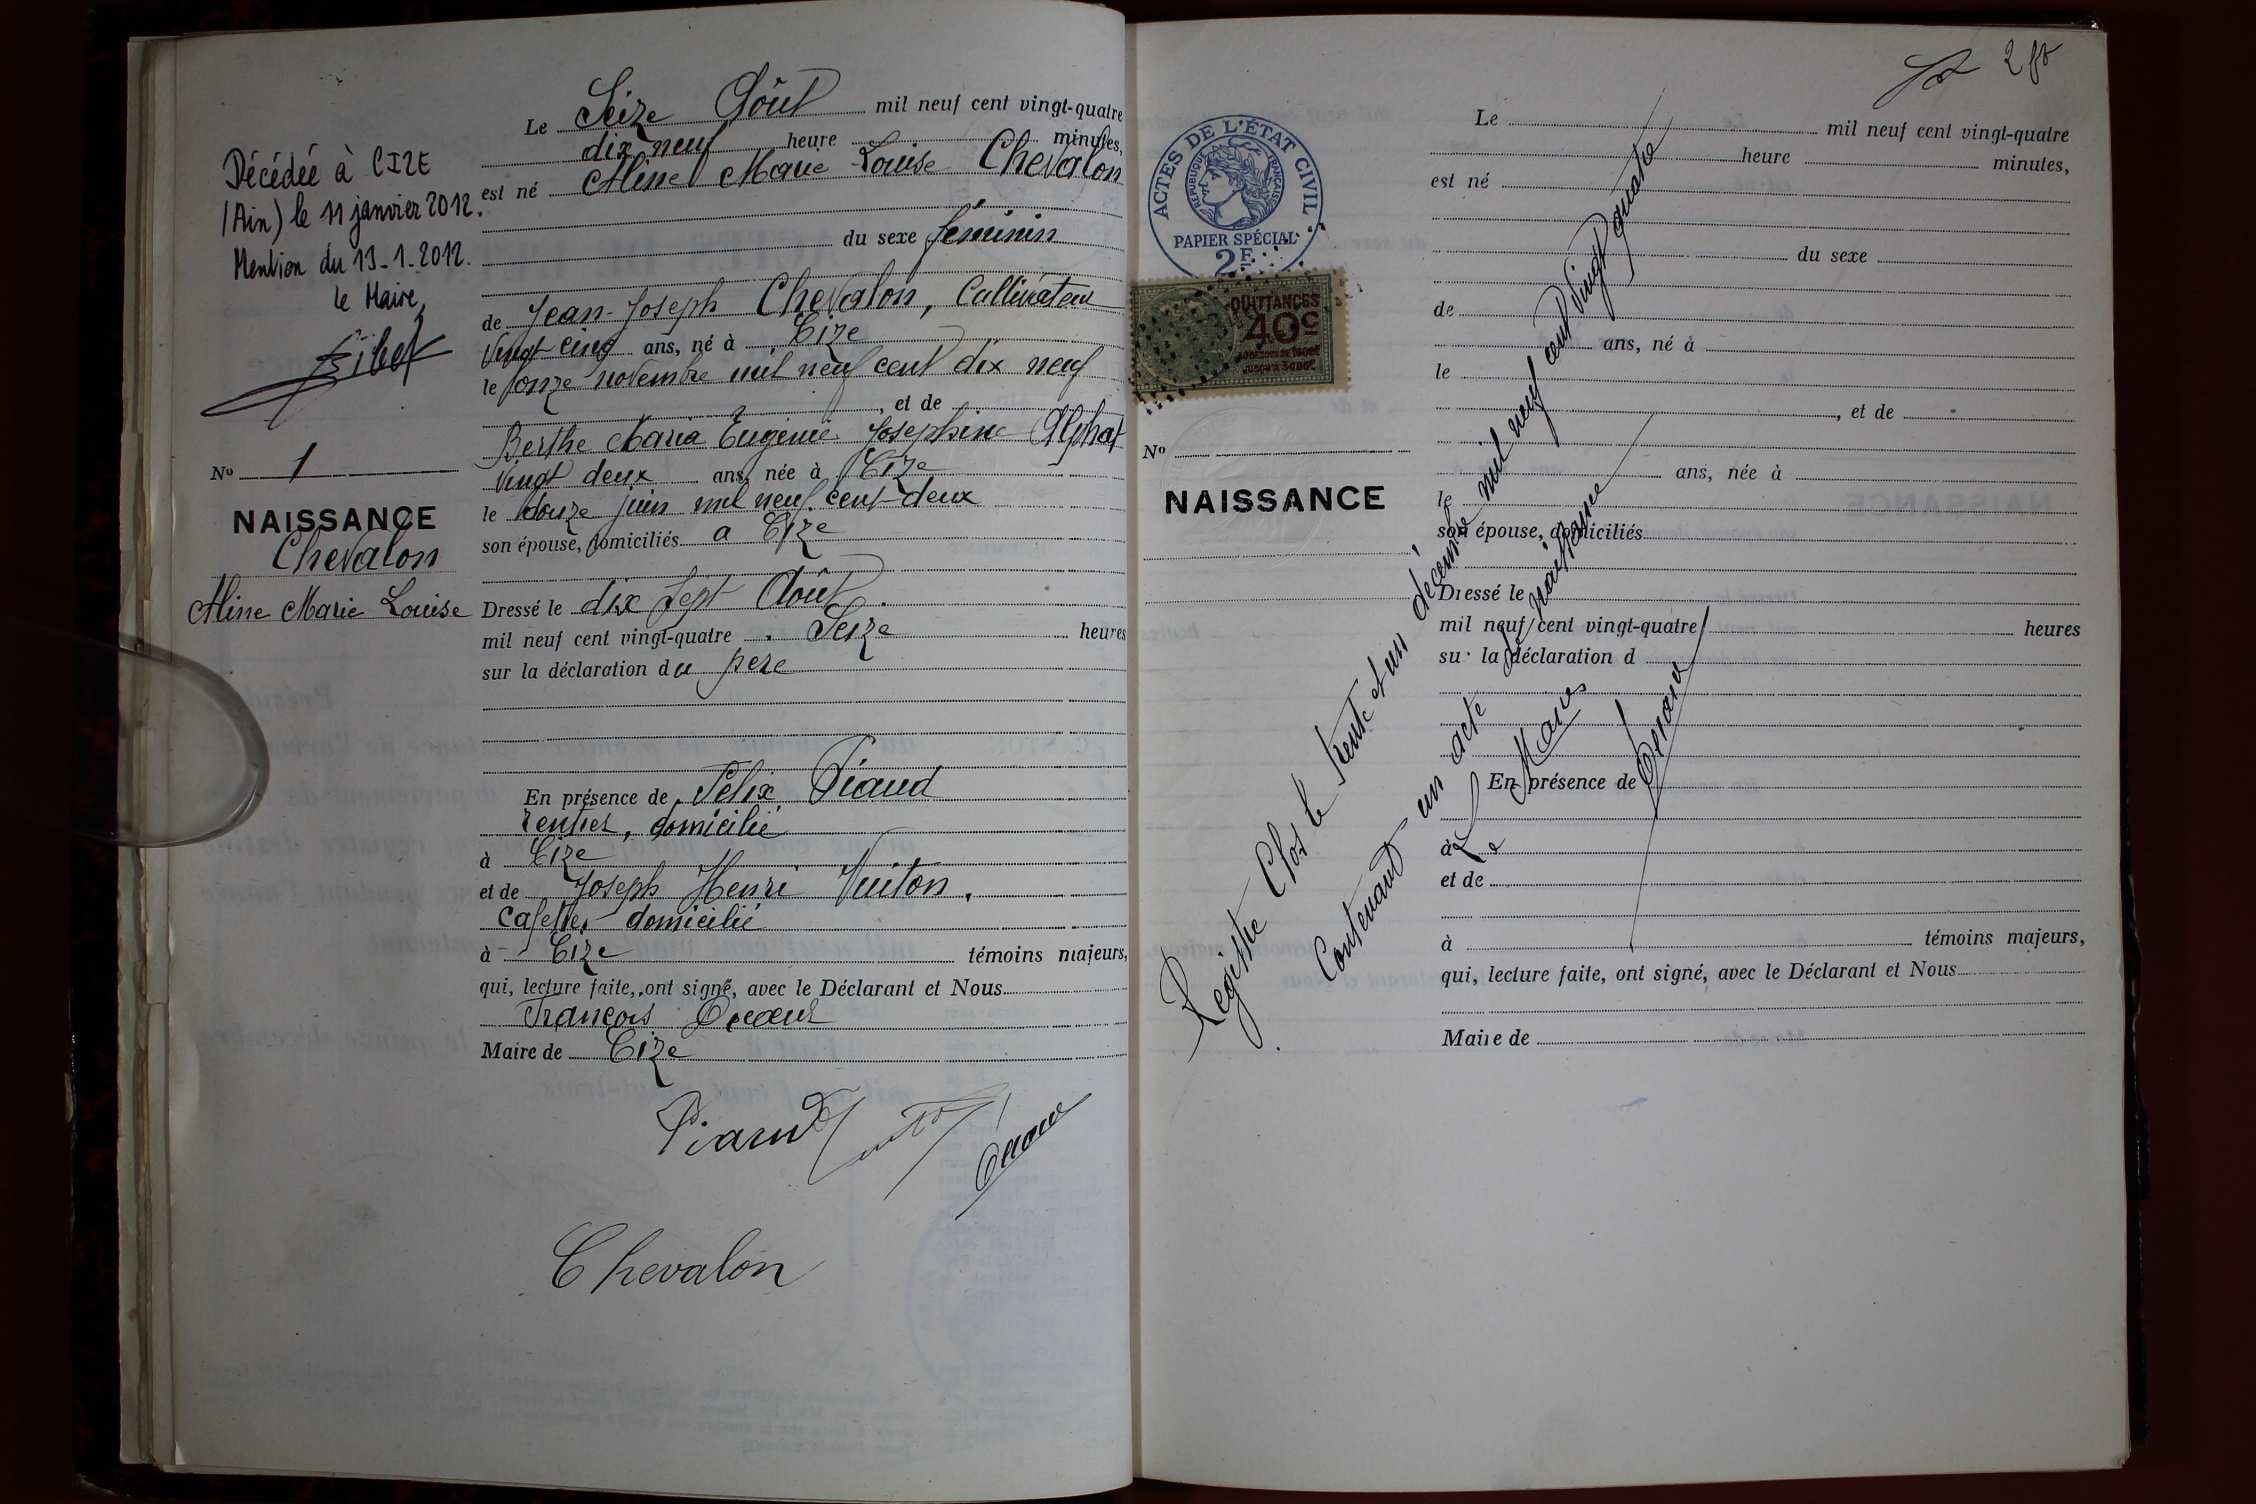 Décédée à CIZE
(Ain) le 11 janvier 2012.
Mention du 13-1-2012.
le Maire,
No 1
NAISSANCE
Chevalon
Aline Marie Louise
Le Seize Août mil neuf cent vingt-quatre
dix neuf heure minutes,
est né Aline Marie Louise Chevalon
du sexe féminin
de Jean-Joseph Chevalon, Cultivateur
Vingt cinq ans, né à Cize
le onze novembre mil neuf cent dix neuf
, et de
Berthe Maria Eugenie Josephine Alphat
Vingt deux ans, née à Cize
le douze juin mil neuf cent-deux
son épouse, domiciliés à Cize
Dressé le dix Sept Août.
mil neuf cent vingt-quatre Seize heures
sur la déclaration du pere
En présence de Felix Piaud
rentier, domicilié
à Cize
et de Joseph Henri Vuiton,
Cafetier domicilié
à Cize témoins majeurs,
qui, lecture faite, ont signé, avec le Déclarant et Nous
François
Maire de Cize
Piaud
Chevalon
2
ACTES DE L'ÉTAT CIVIL
RÉPUBLIQUE FRANÇAISE
PAPIER SPÉCIAL
2F
QUITTANCES
40c
No
NAISSANCE
Le mil neuf cent vingt-quatre
heure minutes,
est né
du sexe
de
ans, né à
le
, et de
ans, née à
le
son épouse, domiciliés
Dressé le
mil neuf cent vingt-quatre heures
sur la déclaration d
En présence de
à
et de
à témoins majeurs,
qui, lecture faite, ont signé, avec le Déclarant et Nous
Maire de
Registre Clos le trente et un décembre mil neuf cent Vingt quatre
Contenant un acte de naissance
Le Maire